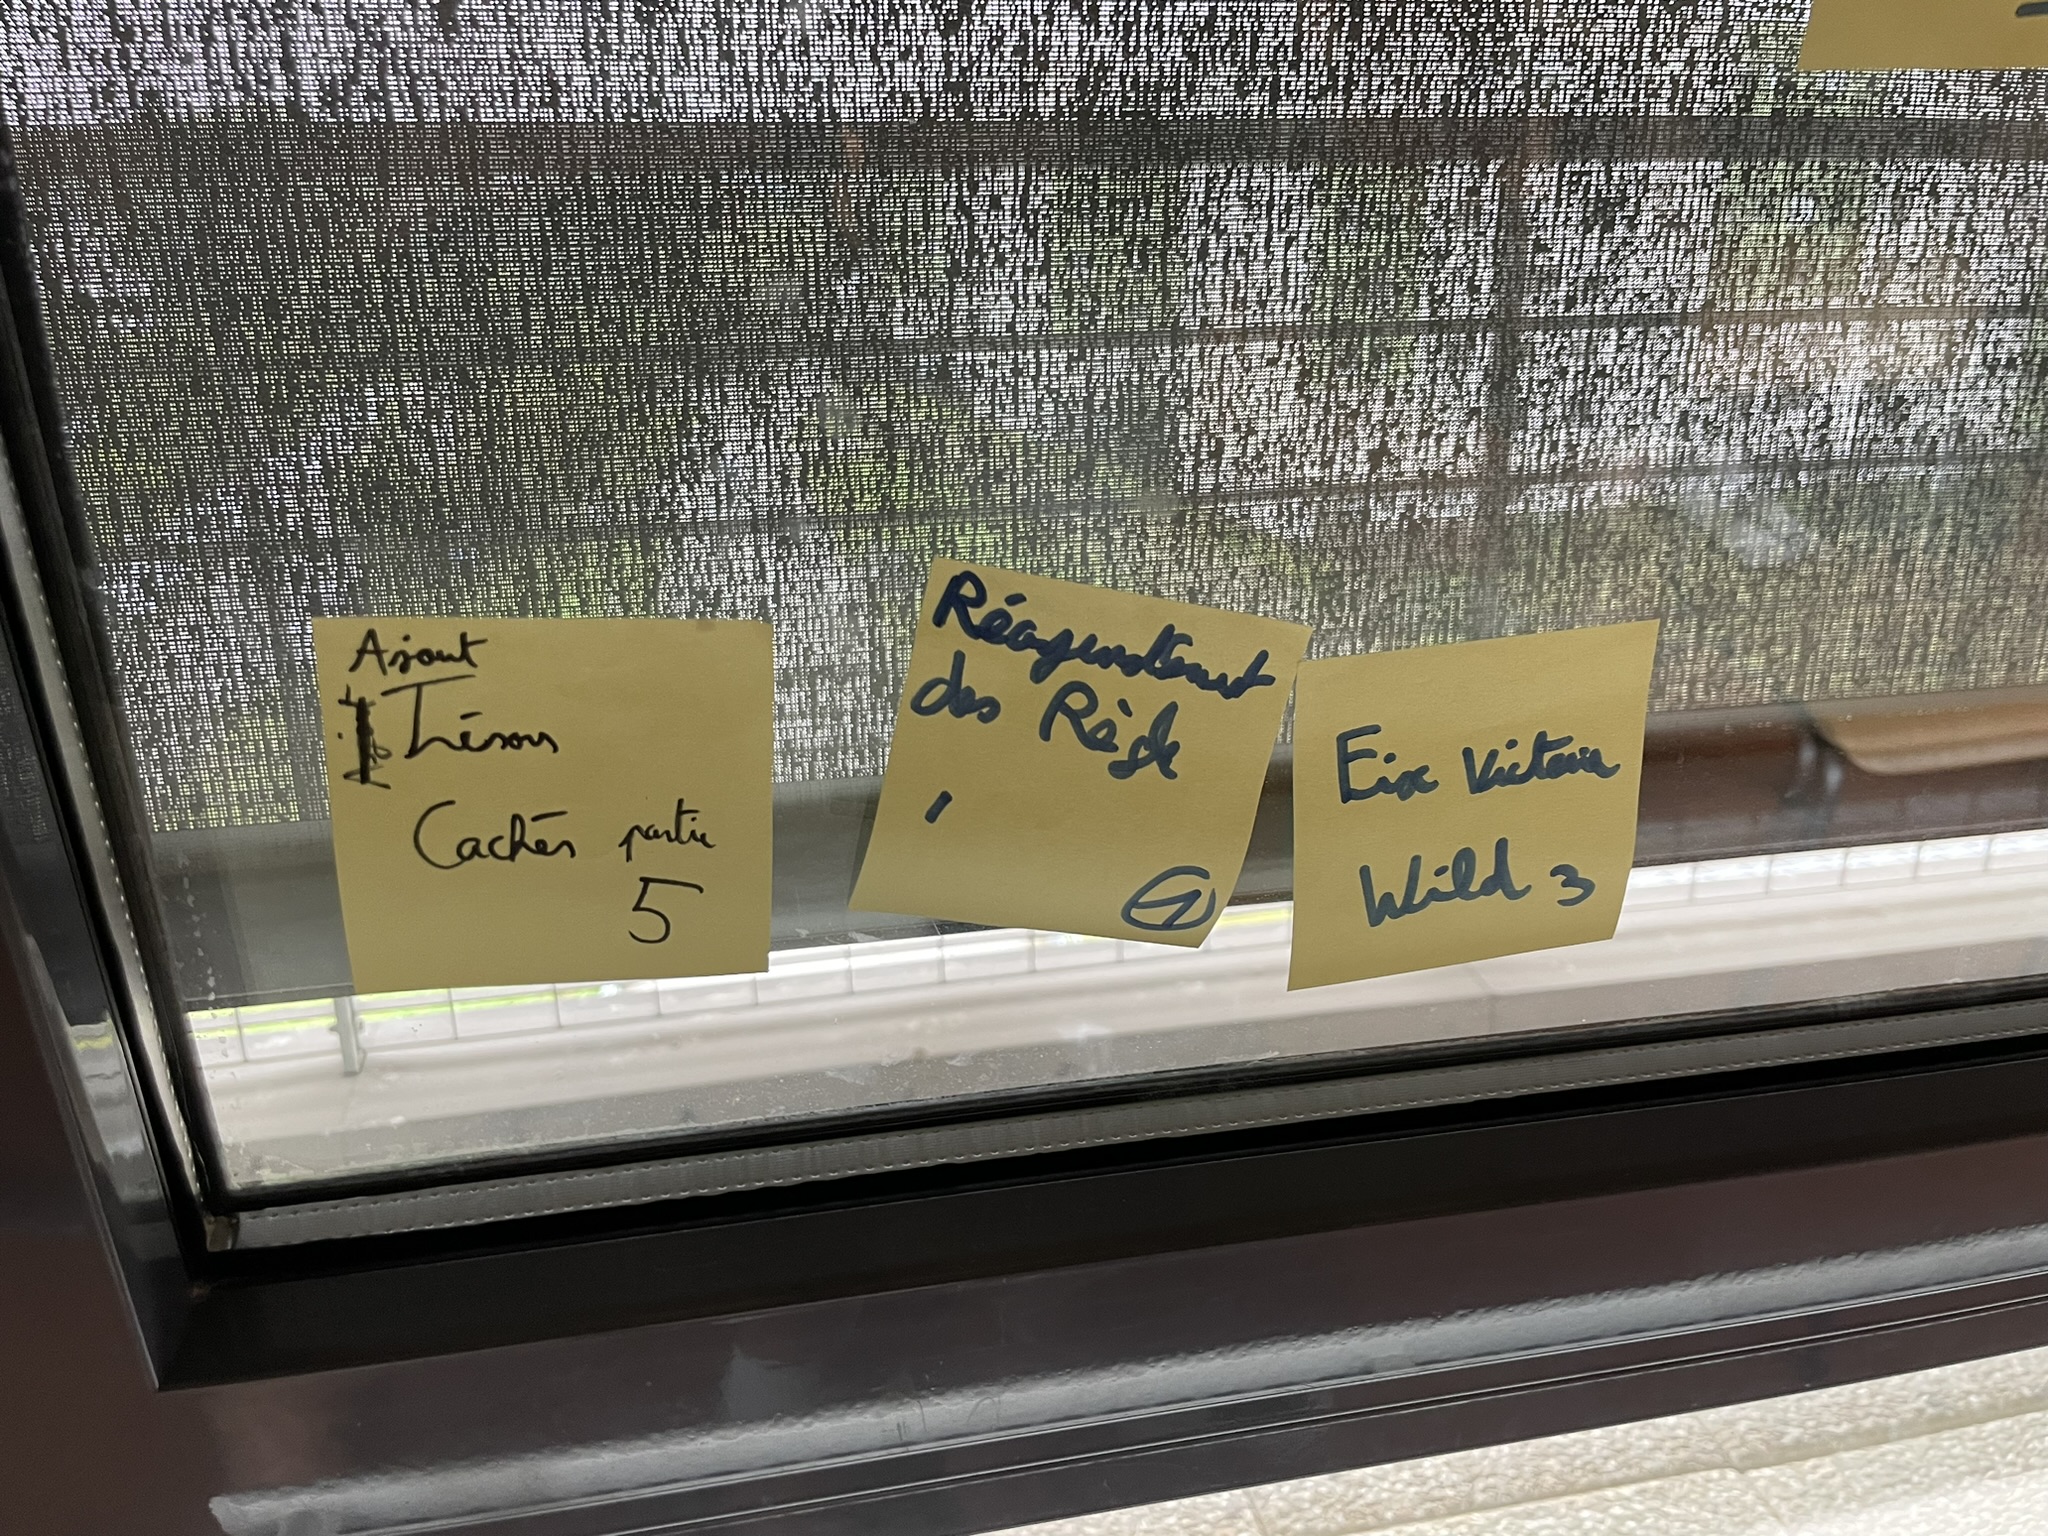 Ajout
Trésors
Cachés partie
5
Réagenstement
des Règle
Fix Victoire
Wild 3